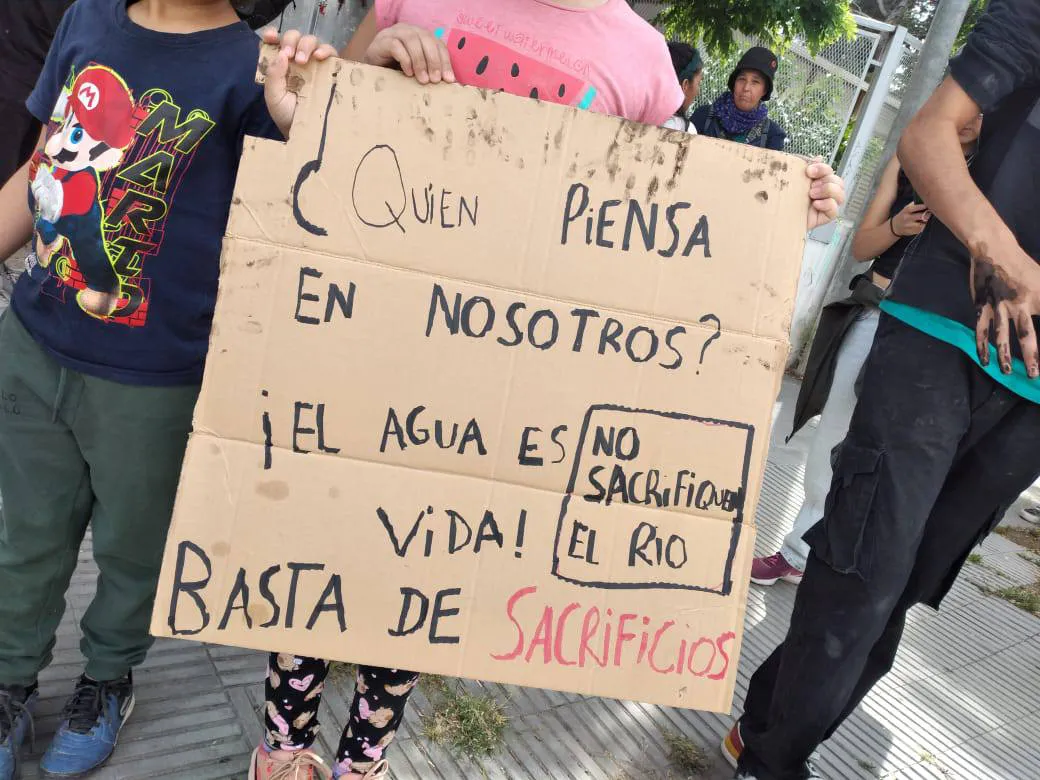 MARIO
sweet watermelon
¿QUIEN PIENSA
EN NOSOTROS?
¡EL AGUA ES
VIDA!
NO
SACRIFIQUEN
EL RIO
BASTA DE SACRIFICIOS